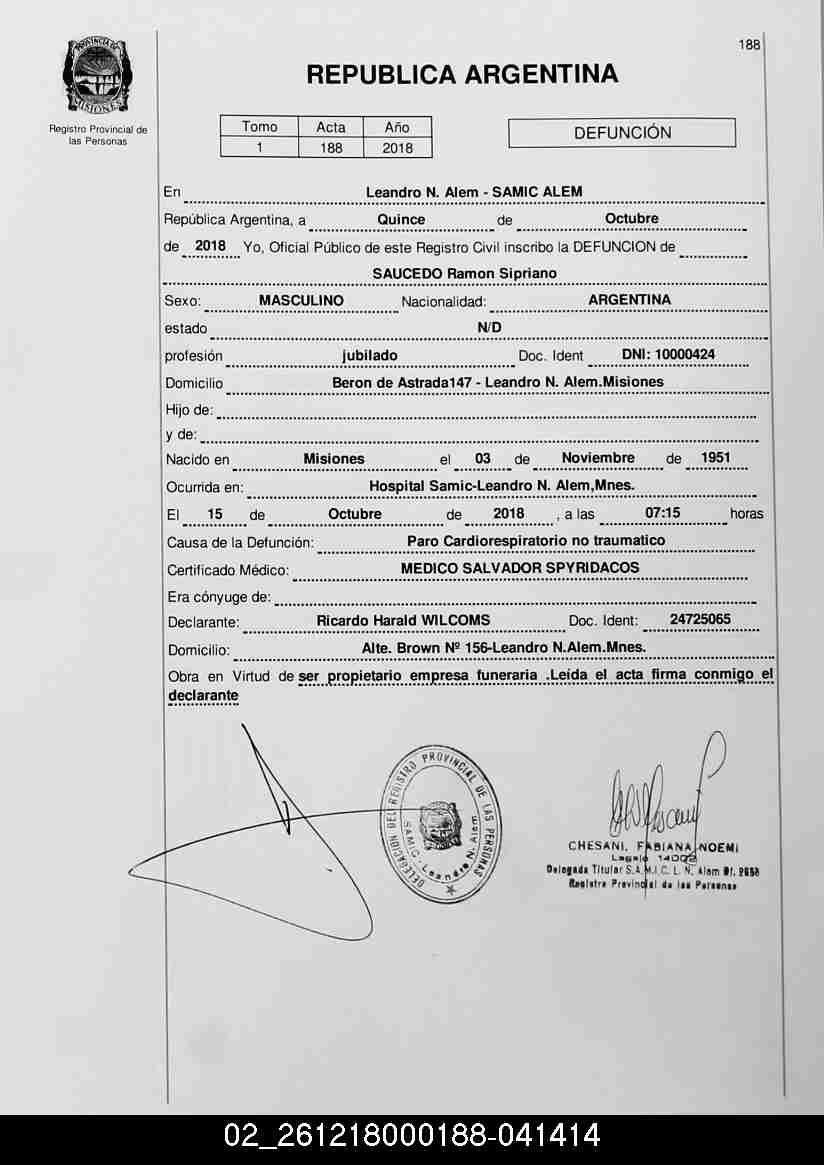 188
PROVINCIA DE
MISIONES
Registro Provincial de
las Personas
REPUBLICA ARGENTINA
Tomo Acta Año
1 188 2018
DEFUNCIÓN
En Leandro N. Alem - SAMIC ALEM
República Argentina, a Quince de Octubre
de 2018 Yo, Oficial Público de este Registro Civil inscribo la DEFUNCION de
SAUCEDO Ramon Sipriano
Sexo: MASCULINO Nacionalidad: ARGENTINA
estado N/D
profesión jubilado Doc. Ident DNI: 10000424
Domicilio Beron de Astrada147 - Leandro N. Alem.Misiones
Hijo de:
y de:
Nacido en Misiones el 03 de Noviembre de 1951
Ocurrida en: Hospital Samic-Leandro N. Alem,Mnes.
El 15 de Octubre de 2018 , a las 07:15 horas
Causa de la Defunción: Paro Cardiorespiratorio no traumatico
Certificado Médico: MEDICO SALVADOR SPYRIDACOS
Era cónyuge de:
Declarante: Ricardo Harald WILCOMS Doc. Ident: 24725065
Domicilio: Alte. Brown Nº 156-Leandro N.Alem.Mnes.
Obra en Virtud de ser propietario empresa funeraria .Leída el acta firma conmigo el
declarante
DELEGACION DEL REGISTRO PROVINCIAL DE LAS PERSONAS
SAMIC - Leandro N. Alem
CHESANI, FABIANA NOEMI
Legajo
Delegada Titular S.A.M.I.C. L. N. Alem
Registro Provincial de las Personas
02_261218000188-041414